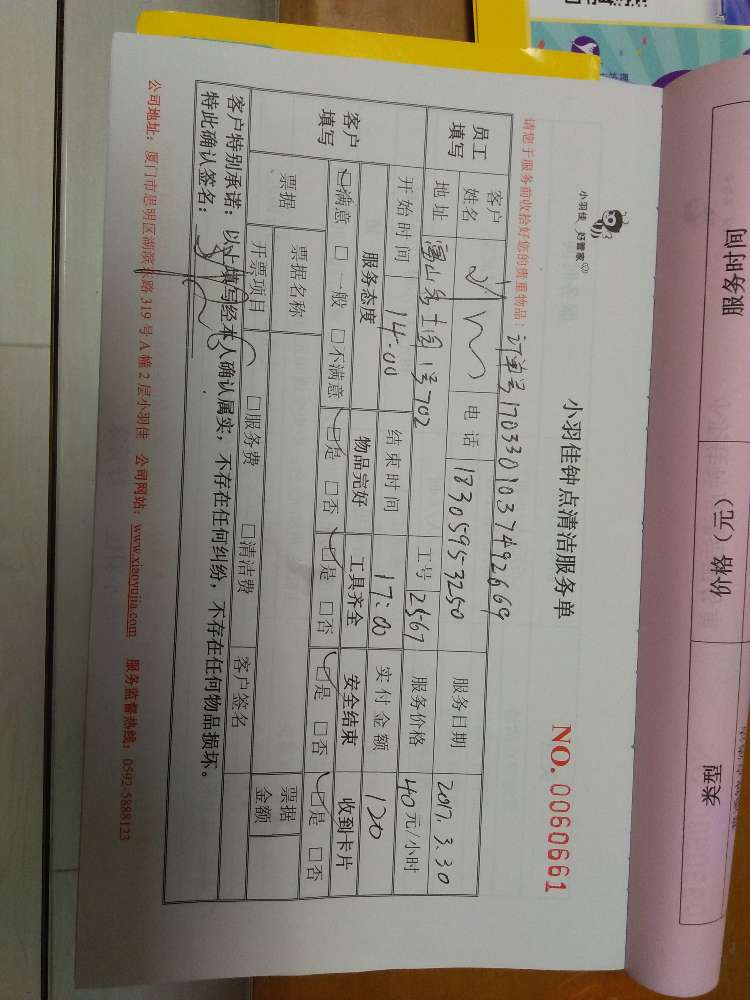 小羽佳 好管家
小羽佳钟点清洁服务单
NO. 0060661
请您于服务前收拾好您的贵重物品！
订单号1703301037492669
员工填写
客户姓名
电话 18305953250
服务日期 2017.3.30
地址 富山名士园1号702
工号 2567
服务价格 40元/小时
开始时间 14:00
结束时间 17:00
实付金额 120
客户填写
服务态度 物品完好 工具齐全 安全结束 收到卡片
☑满意 □一般 □不满意 ☑是 □否 ☑是 □否 ☑是 □否 ☑是 □否
票据
票据名称
票据金额
开票项目 □服务费 □清洁费 客户签名
客户特别承诺：以上填写经本人确认属实，不存在任何纠纷，不存在任何物品损坏。
特此确认签名：
公司地址：厦门市思明区湖滨东路319号A幢2层小羽佳 公司网站：www.xiaoyujia.com 服务监督热线：0592-5888123
服务时间
价格（元）
类型